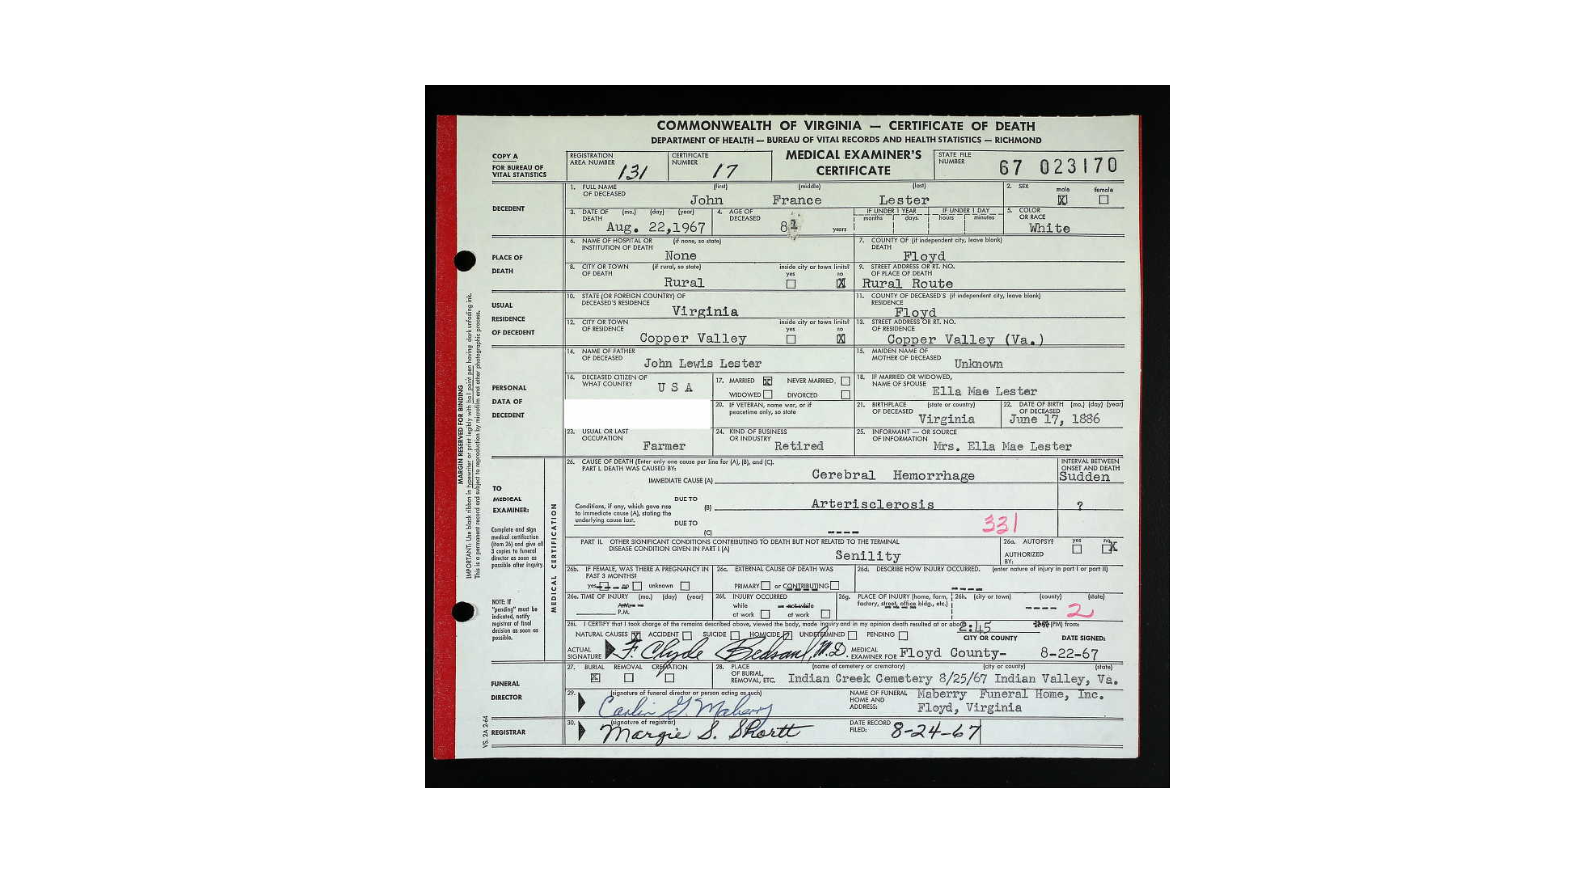 COMMONWEALTH OF VIRGINIA — CERTIFICATE OF DEATH
DEPARTMENT OF HEALTH — BUREAU OF VITAL RECORDS AND HEALTH STATISTICS — RICHMOND
COPY A
FOR BUREAU OF
VITAL STATISTICS
REGISTRATION
AREA NUMBER 131
CERTIFICATE
NUMBER 17
MEDICAL EXAMINER'S
CERTIFICATE
STATE FILE
NUMBER 67 023170
DECEDENT
1. FULL NAME
OF DECEASED
(first) (middle) (last)
John France Lester
2. SEX male female
X
3. DATE OF (mo.) (day) (year)
DEATH
Aug. 22,1967
4. AGE OF
DECEASED
years
IF UNDER 1 YEAR IF UNDER 1 DAY
months days hours minutes
5. COLOR
OR RACE
White
PLACE OF
DEATH
6. NAME OF HOSPITAL OR (if none, so state)
INSTITUTION OF DEATH
None
7. COUNTY OF (if independent city, leave blank)
DEATH
Floyd
8. CITY OR TOWN (if rural, so state) inside city or town limits?
OF DEATH yes no
Rural X
9. STREET ADDRESS OR RT. NO.
OF PLACE OF DEATH
Rural Route
USUAL
RESIDENCE
OF DECEDENT
10. STATE (OR FOREIGN COUNTRY) OF
DECEASED'S RESIDENCE
Virginia
11. COUNTY OF DECEASED'S (if independent city, leave blank)
RESIDENCE
Floyd
12. CITY OR TOWN inside city or town limits?
OF RESIDENCE yes no
Copper Valley X
13. STREET ADDRESS OR RT. NO.
OF RESIDENCE
Copper Valley (Va.)
PERSONAL
DATA OF
DECEDENT
14. NAME OF FATHER
OF DECEASED
John Lewis Lester
15. MAIDEN NAME OF
MOTHER OF DECEASED
Unknown
16. DECEASED CITIZEN OF
WHAT COUNTRY
U S A
17. MARRIED X NEVER MARRIED,
WIDOWED DIVORCED
18. IF MARRIED OR WIDOWED,
NAME OF SPOUSE
Ella Mae Lester
20. IF VETERAN, name war, or if
peacetime only, so state
21. BIRTHPLACE (state or country)
OF DECEASED
Virginia
22. DATE OF BIRTH (mo.) (day) (year)
OF DECEASED
June 17, 1886
23. USUAL OR LAST
OCCUPATION
Farmer
24. KIND OF BUSINESS
OR INDUSTRY
Retired
25. INFORMANT — OR SOURCE
OF INFORMATION
Mrs. Ella Mae Lester
TO
MEDICAL
EXAMINER:
Complete and sign
medical certification
(item 26) and give all
3 copies to funeral
director as soon as
possible after inquiry.
NOTE: If
"pending" must be
indicated, notify
registrar of final
decision as soon as
possible.
MEDICAL CERTIFICATION
26. CAUSE OF DEATH (Enter only one cause per line for (A), (B), and (C).
PART I. DEATH WAS CAUSED BY:
IMMEDIATE CAUSE (A) Cerebral Hemorrhage
INTERVAL BETWEEN
ONSET AND DEATH
Sudden
DUE TO
Conditions, if any, which gave rise
to immediate cause (A), stating the
underlying cause last.
(B) Arterisclerosis ?
DUE TO
(C) ----
331
PART II. OTHER SIGNIFICANT CONDITIONS CONTRIBUTING TO DEATH BUT NOT RELATED TO THE TERMINAL
DISEASE CONDITION GIVEN IN PART I (A)
Senility
26a. AUTOPSY? yes no
X
AUTHORIZED
BY:
26b. IF FEMALE, WAS THERE A PREGNANCY IN
PAST 3 MONTHS?
yes no unknown
26c. EXTERNAL CAUSE OF DEATH WAS
PRIMARY or CONTRIBUTING
26d. DESCRIBE HOW INJURY OCCURRED. (enter nature of injury in part I or part II)
----
26e. TIME OF INJURY (mo.) (day) (year)
P.M.
26f. INJURY OCCURRED
while
at work at work
26g. PLACE OF INJURY (home, farm,
factory, street, office bldg., etc.)
26h. (city or town) (county) (state)
---- 2
26i. I CERTIFY that I took charge of the remains described above, viewed the body, made inquiry and in my opinion death resulted at or about 2:45 (PM) from:
NATURAL CAUSES X ACCIDENT SUICIDE HOMICIDE UNDETERMINED PENDING
CITY OR COUNTY DATE SIGNED:
ACTUAL
SIGNATURE F. Clyde Bedsaul, M.D.
MEDICAL
EXAMINER FOR Floyd County- 8-22-67
FUNERAL
DIRECTOR
27. BURIAL REMOVAL CREMATION
X
28. PLACE (name of cemetery or crematory) (city or county) (state)
OF BURIAL,
REMOVAL, ETC.
Indian Creek Cemetery 8/25/67 Indian Valley, Va.
29. (signature of funeral director or person acting as such)
Carlin G. Maberry
NAME OF FUNERAL
HOME AND
ADDRESS:
Maberry Funeral Home, Inc.
Floyd, Virginia
REGISTRAR
30. (signature of registrar)
Margie S. Shortt
DATE RECORD
FILED: 8-24-67
VS. 2A 2-64
MARGIN RESERVED FOR BINDING
IMPORTANT: Use black ribbon in typewriter or print legibly with ball point pen having dark unfading ink.
This is a permanent record and subject to reproduction by microfilm and other photographic process.